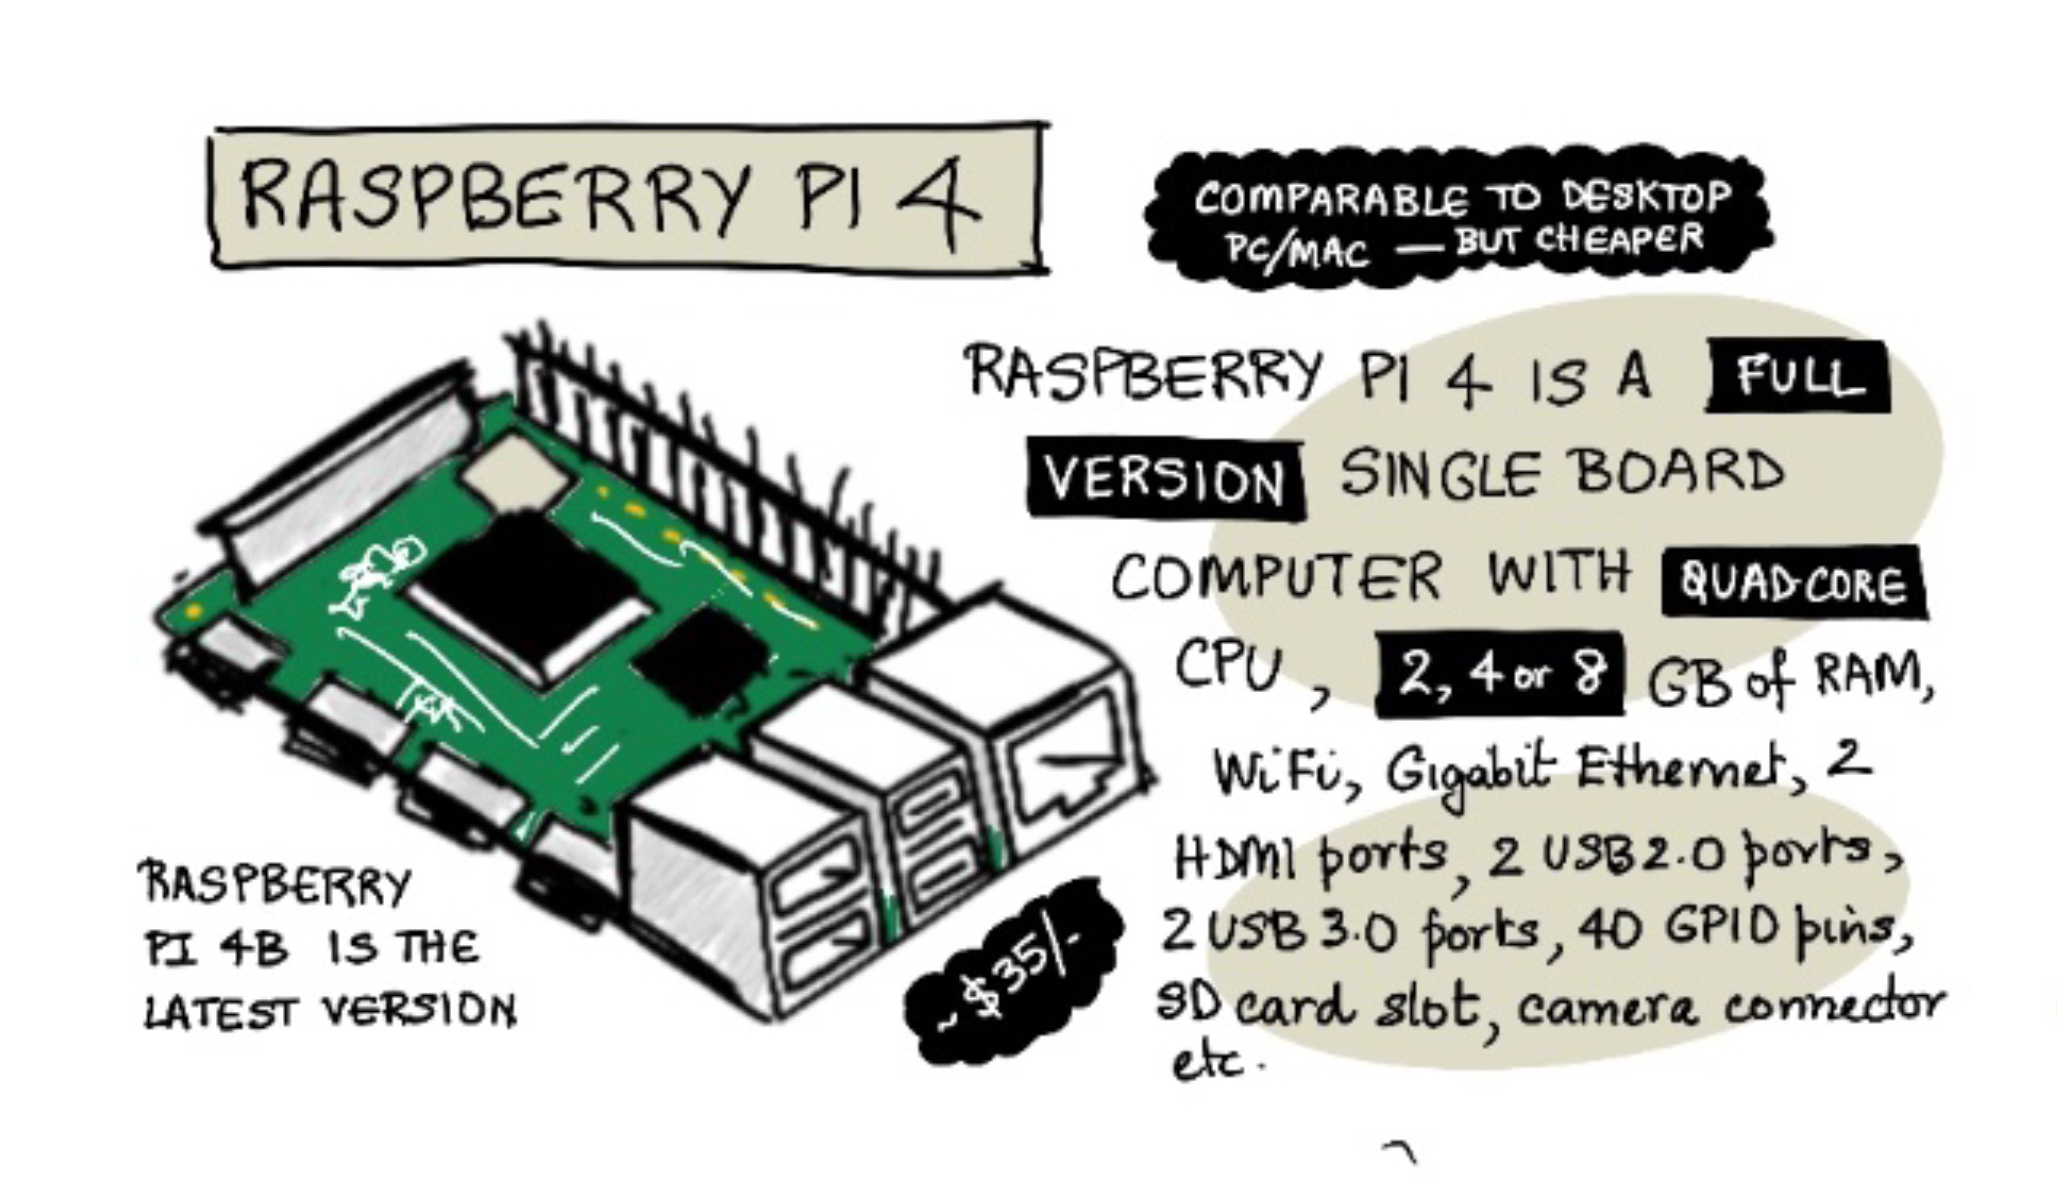 RASPBERRY PI 4
COMPARABLE TO DESKTOP
PC/MAC — BUT CHEAPER
RASPBERRY PI 4 IS A FULL
VERSION SINGLE BOARD
COMPUTER WITH QUAD-CORE
CPU, 2, 4 or 8 GB of RAM,
WiFi, Gigabit Ethernet, 2
HDMI ports, 2 USB 2.0 ports,
2 USB 3.0 ports, 40 GPIO pins,
SD card slot, camera connector
etc.
~ $35/-
RASPBERRY
PI 4B IS THE
LATEST VERSION